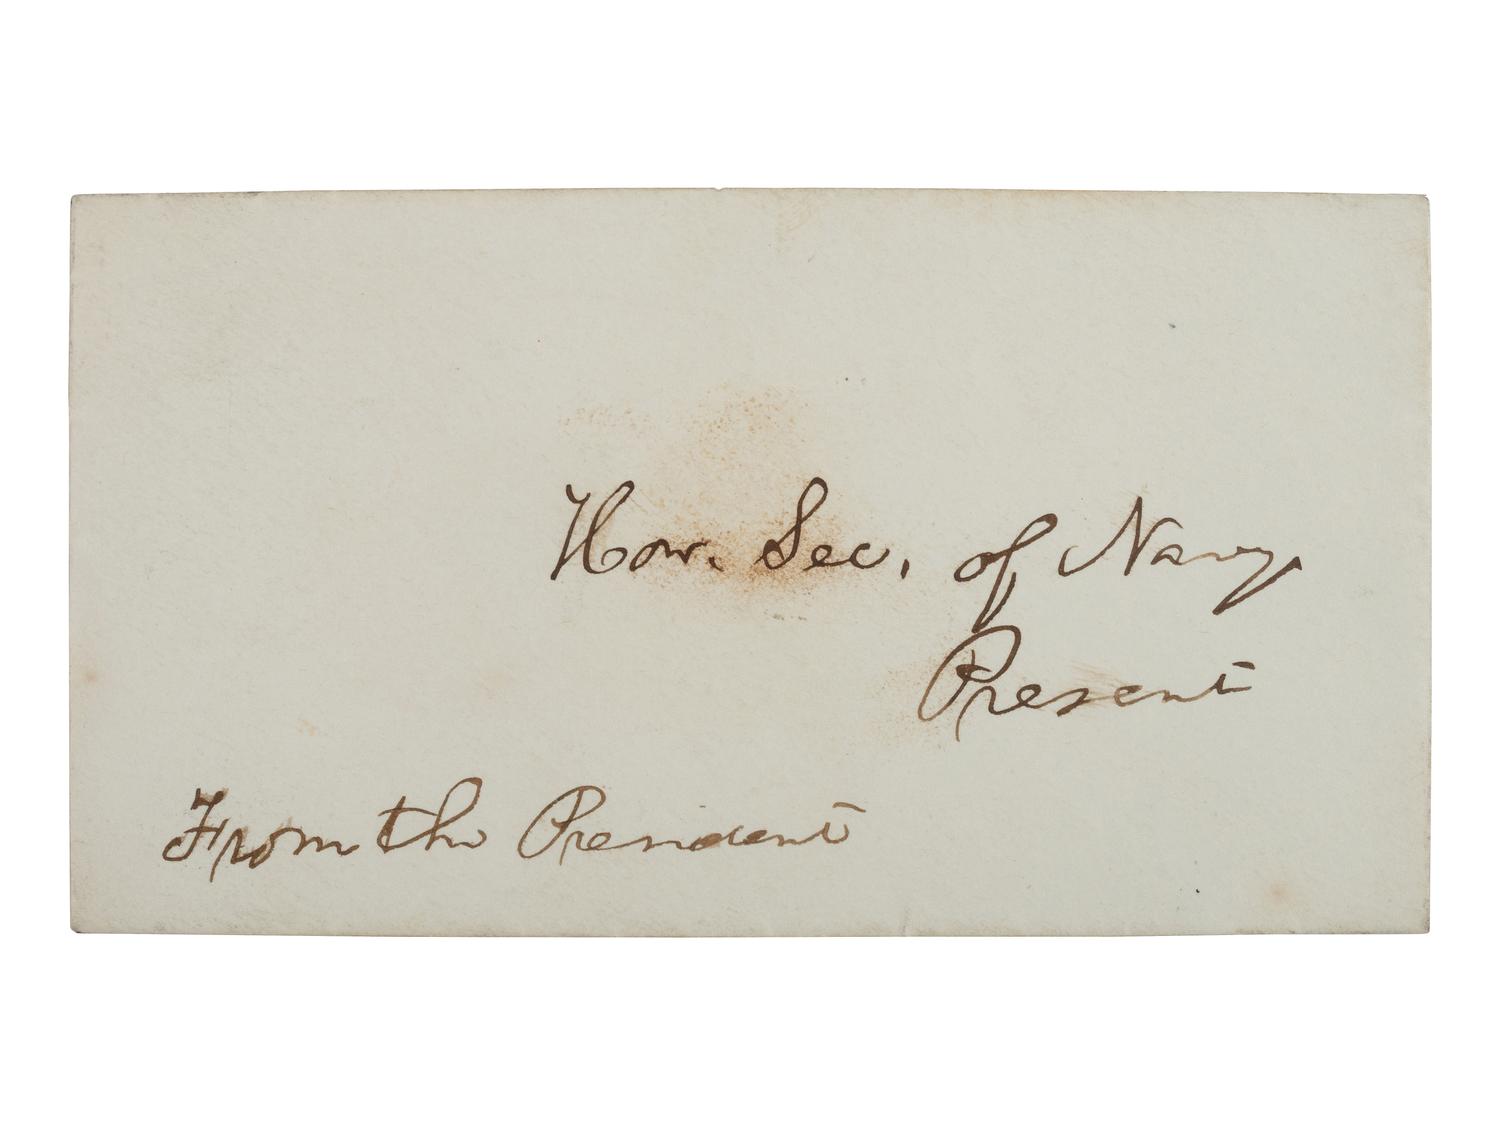 Hon. Sec. of Navy.
Present
From the President